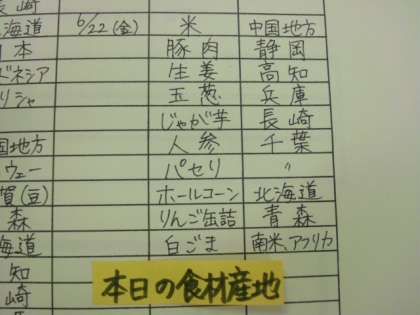 崎
海道 6/22(金) 米 中国地方
本 豚肉 静岡
ドネシア 生姜 高知
リシャ 玉葱 兵庫
じゃが芋 長崎
国地方 人参 千葉
ウェー パセリ 〃
賀(豆) ホールコーン 北海道
森 りんご缶詰 青森
海道 白ごま 南米、アフリカ
知
崎
本日の食材産地